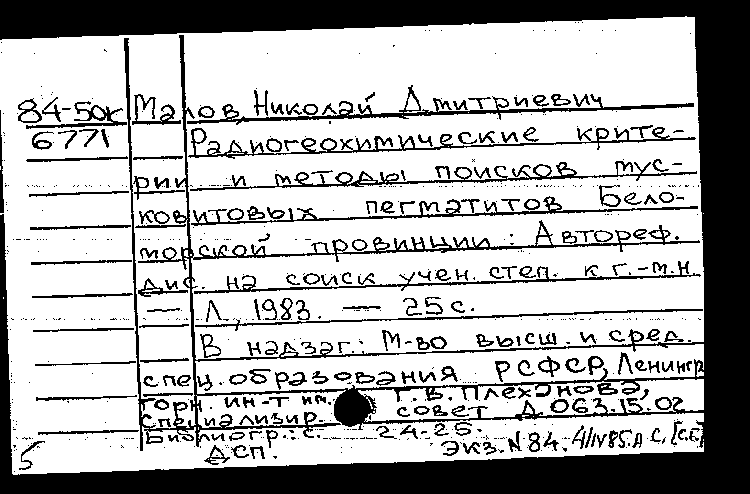 84-50к Малов, Николай Дмитриевич
6771 Радиогеохимические крите-
рии и методы поисков мус-
ковитовых пегматитов Бело-
морской провинции: Автореф.
дис. на соиск учен. степ. к г.-м.н.
— Л, 1983. — 25 с.
В надзаг.: М-во высш. и сред.
спец. образования РСФСР, Ленингр
горн. ин-т им. Г. В. Плеханова,
Специализир. совет Д 063.15.02
Библиогр.: с. 24-25.
5 ДСП. Экз. N 84.